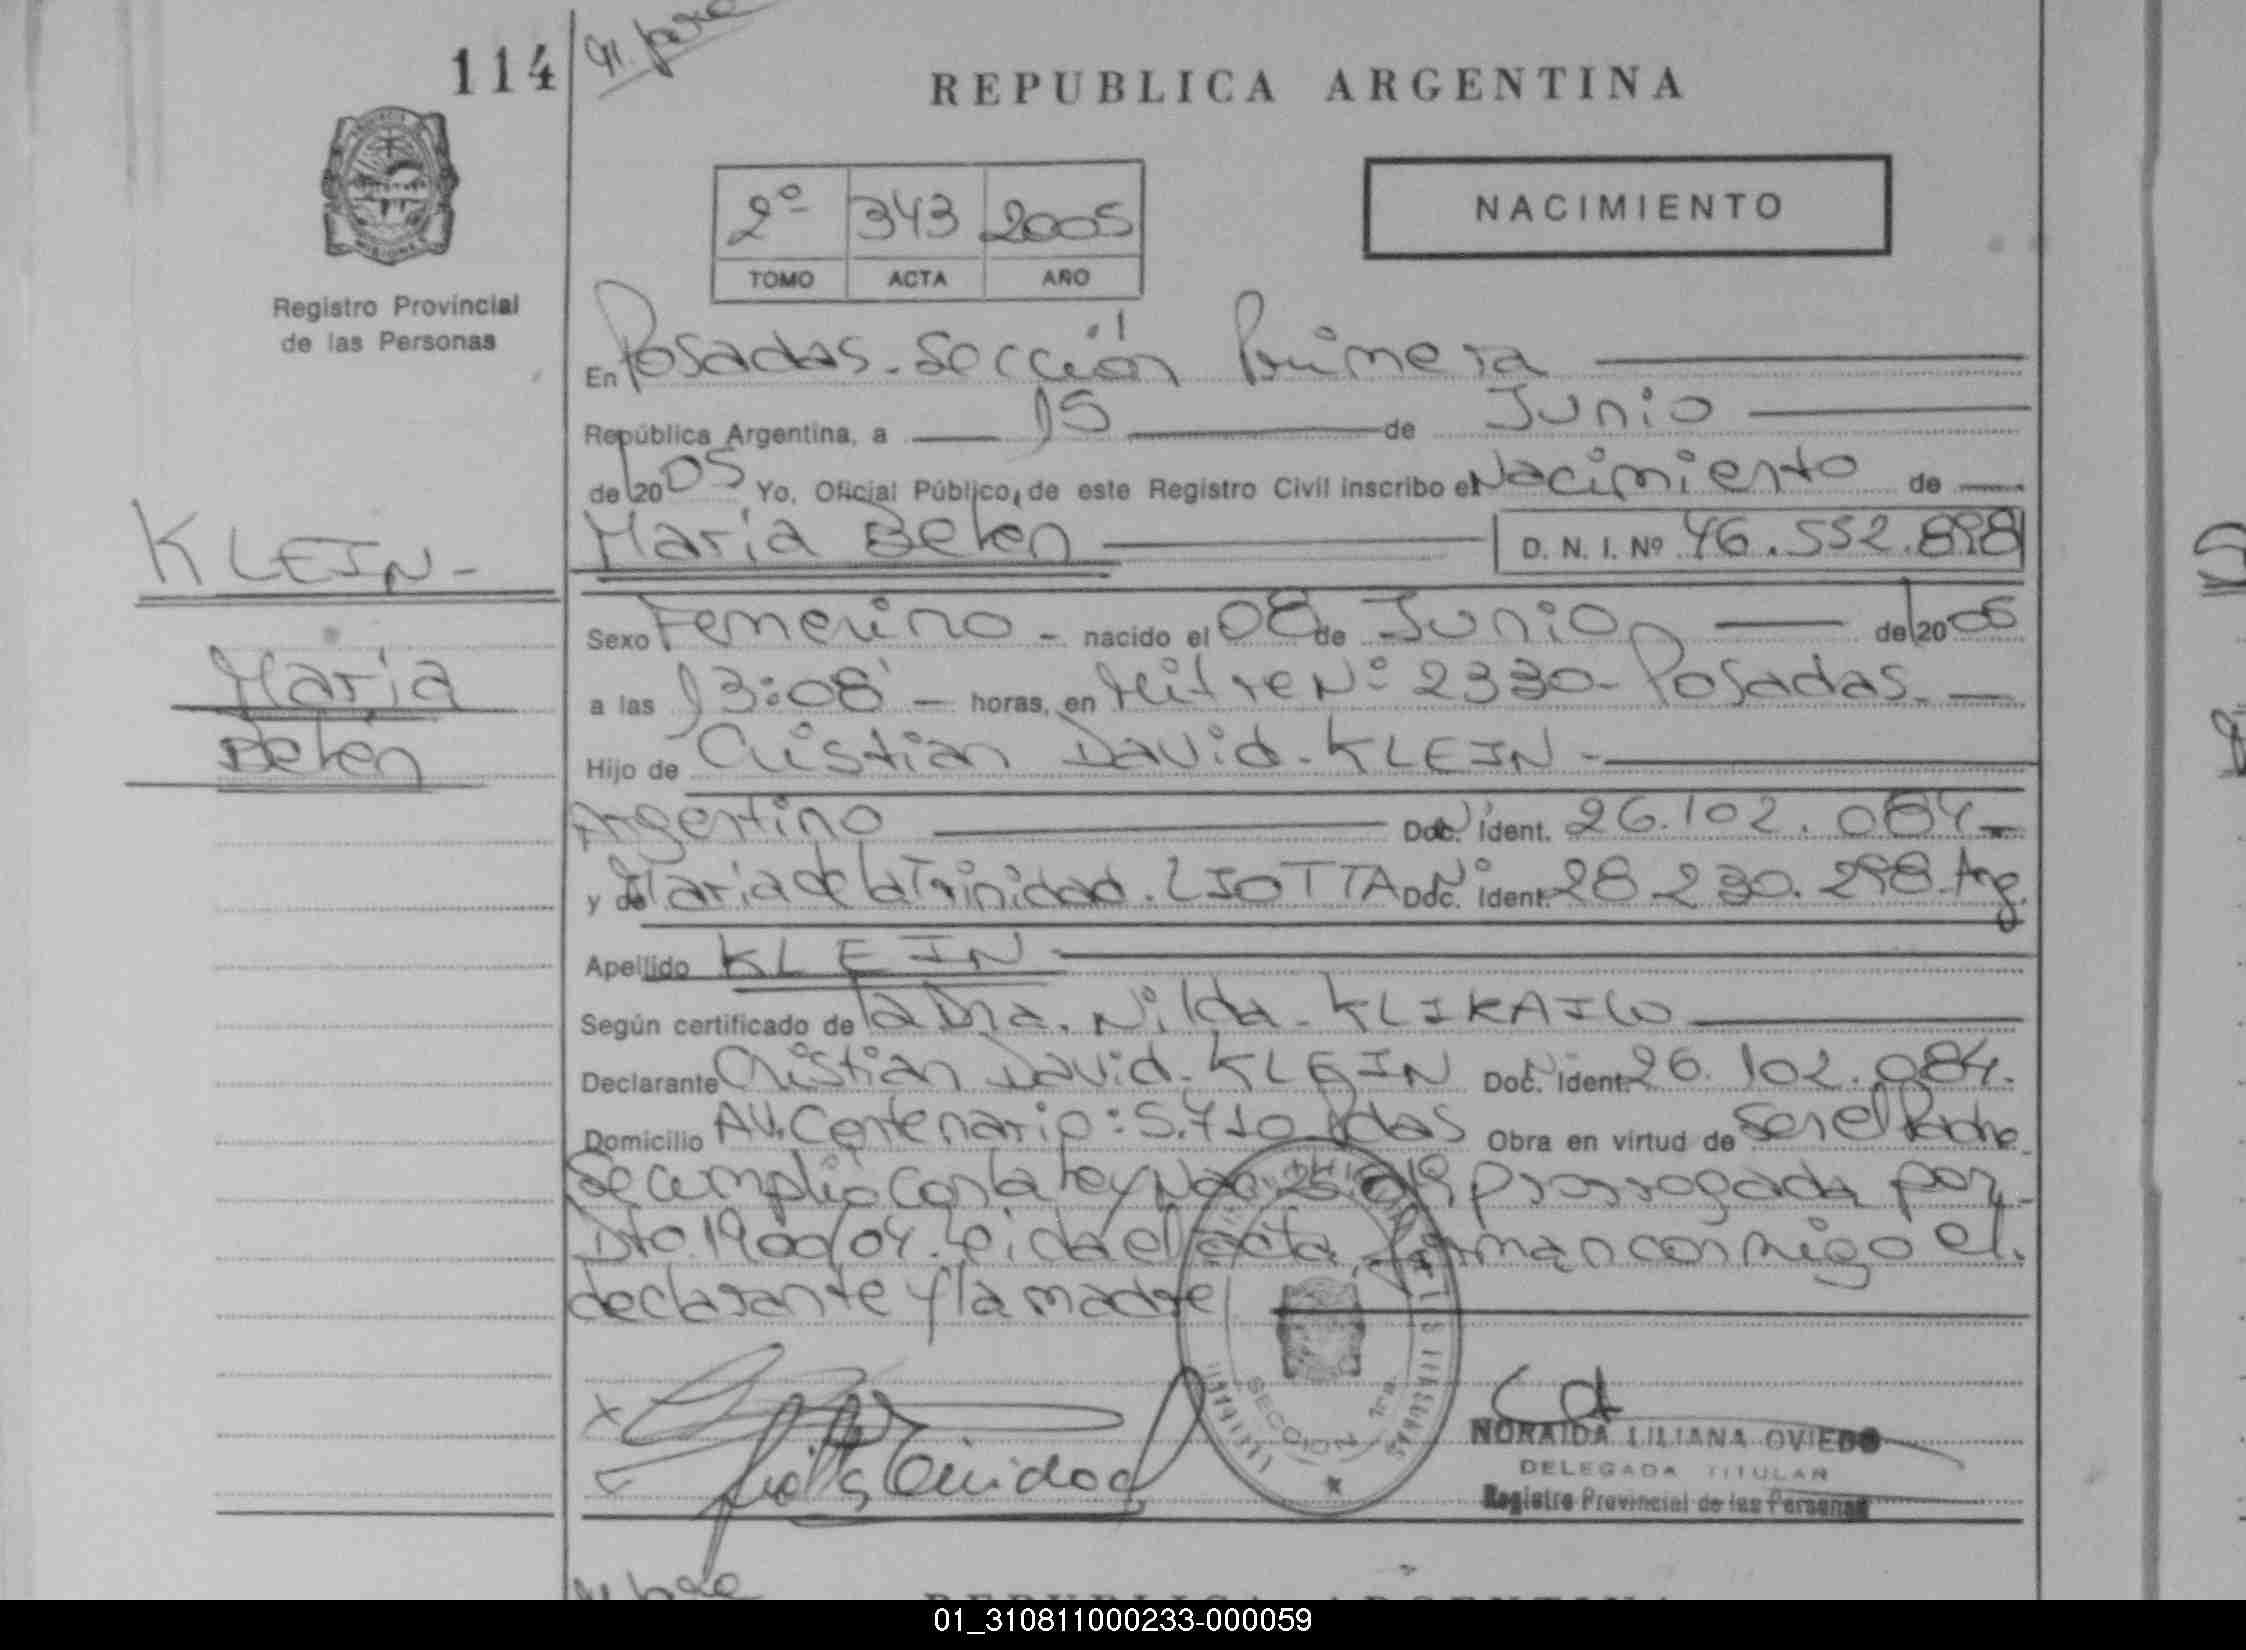 114
REPUBLICA ARGENTINA
2º 343 2005
TOMO ACTA AÑO
NACIMIENTO
Registro Provincial
de las Personas
En Posadas. Sección Primera
República Argentina, a 15 de Junio
de 2005 Yo, Oficial Público, de este Registro Civil inscribo el Nacimiento de
María Belén D. N. I. Nº 46.552.898
KLEIN-
María
Belén
Sexo Femenino - nacido el 08 de Junio de 2005
a las 13:08' - horas, en Mitre Nº 2330- Posadas.
Hijo de Cristian David. KLEIN-
Argentino Doc. Ident. 26.102.084-
y de Maria de la Trinidad. LIOTTA Doc. Ident. 28 230.298. Arg.
Apellido KLEIN
Según certificado de la Dra. Nilda. KLIKAILO
Declarante Cristian David. KLEIN Doc. Ident. 26.102.084.
Domicilio AV. Centenario: 5.710 Pdas Obra en virtud de Ser el Padre
Se cumplió con la Ley Nac. prorrogada por
Dto. 1900/04. Leida el acta firman conmigo el
declarante y la madre
SECCION 1ra
Trinidad
NORAIDA LILIANA OVIEDO
DELEGADA TITULAR
Registro Provincial de las Personas
REPUBLICA ARGENTINA
01_310811000233-000059